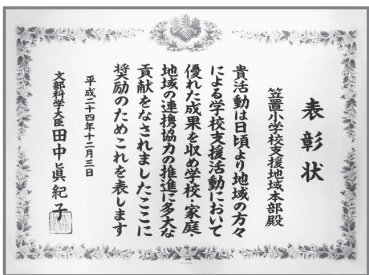 表彰状
笠置小学校支援地域本部殿
貴活動は日頃より地域の方々
による学校支援活動において
優れた成果を収め学校・家庭
地域の連携協力の推進に多大な
貢献をなされましたここに
奨励のためこれを表します
平成二十四年十二月三日
文部科学大臣 田中眞紀子